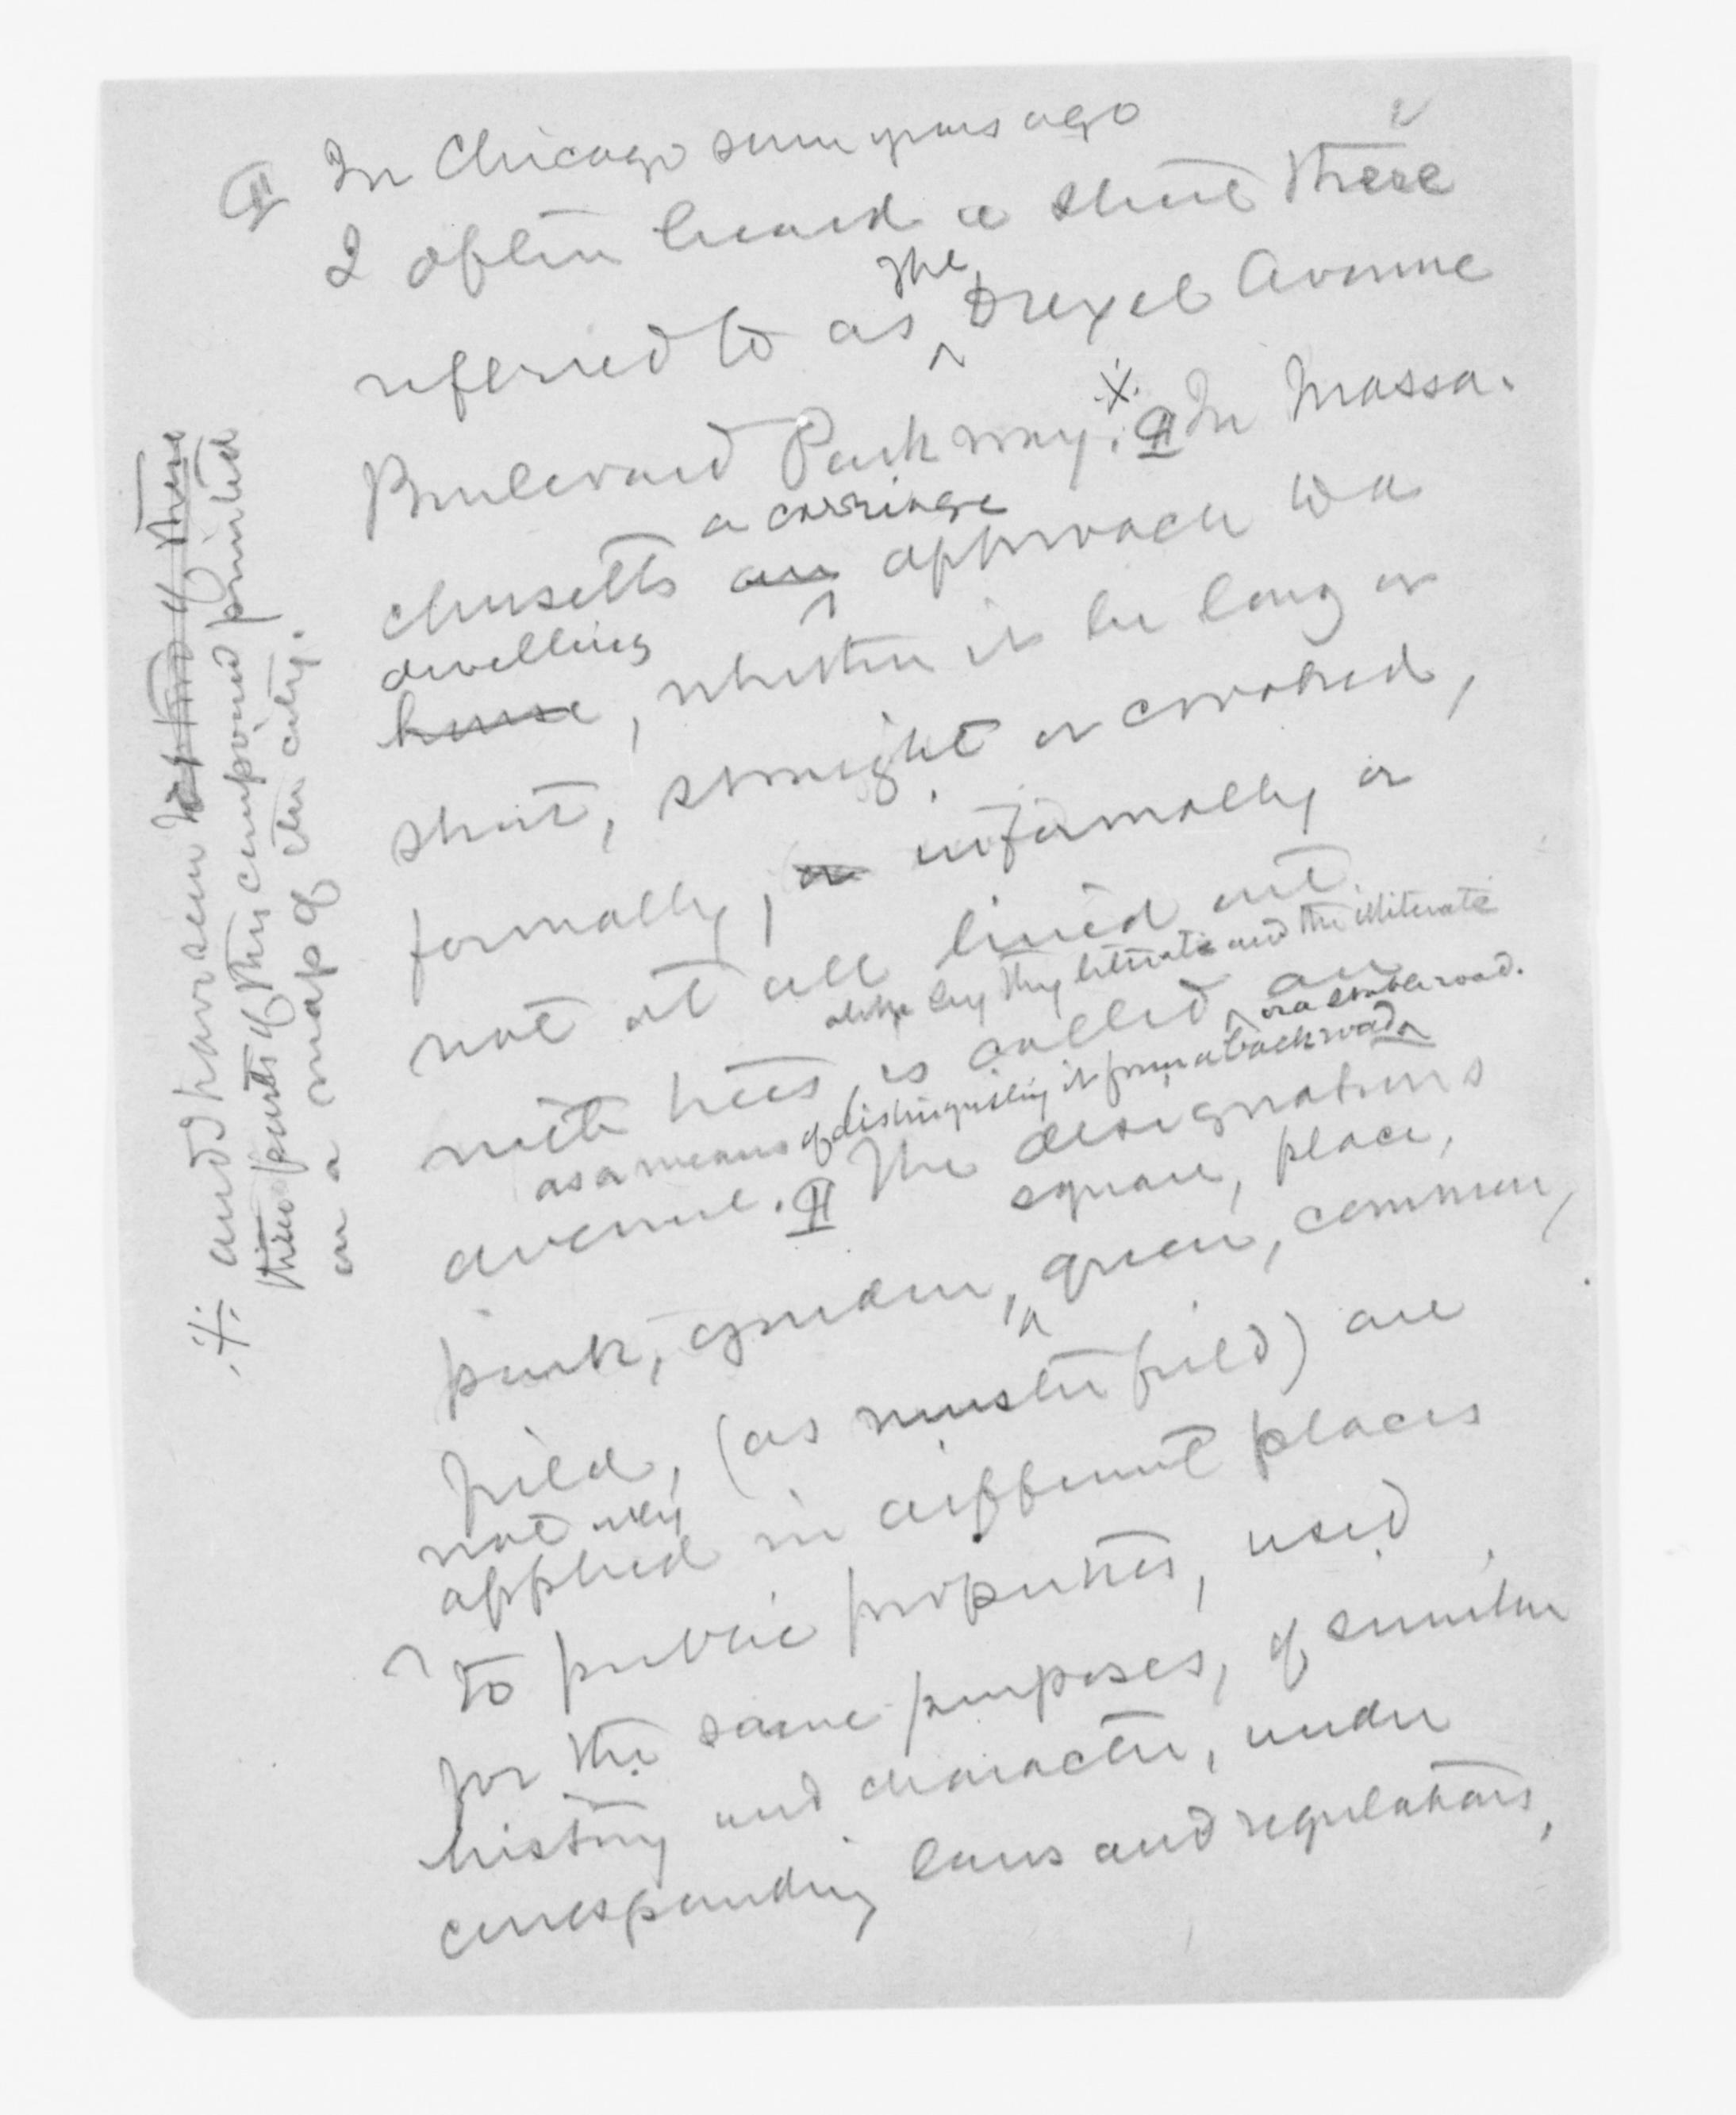 2
¶ In Chicago some years ago
I often heard a street there
the
referred to as ^ Drexel Avenue
Boulevard Parkway.※ ¶ In Massa-
a carriage
chusetts an ^ approach to a
dwelling
house, whether it be long or
short, straight or crooked,
formally, or informally or
not at all lined out
alike by the literate and the illiterate
with trees, is called ^ an
or a stable road.
as a means of distinguishing it from a back road ^
avenue. ¶ The designations
square, place,
park, garden, ^ green, common,
field, (as muster field) are
not only
applied in different places
^ to public properties, used
for the same purposes, of similar
history and character, under
corresponding laws and regulations,
※ and have seen two of these
three parts of this compound printed
on a map of the city.